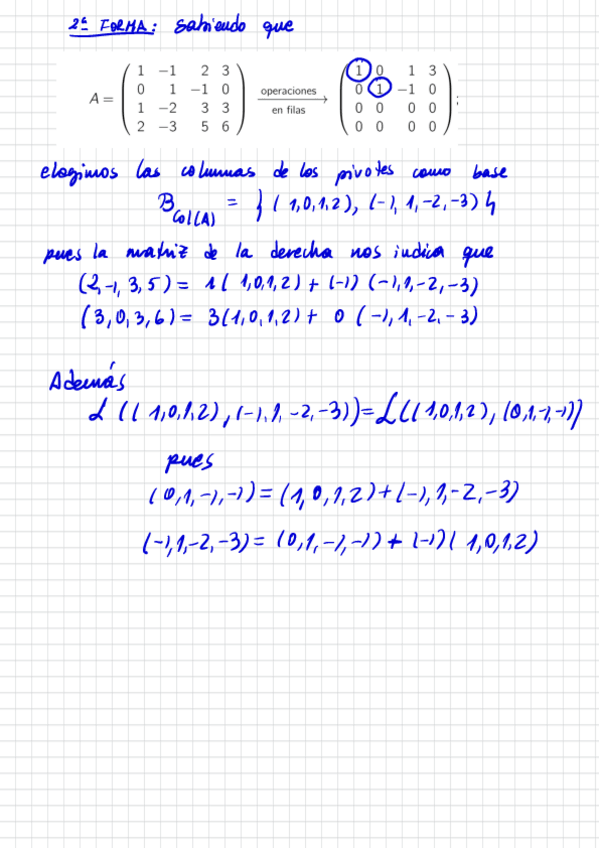 2ª FORMA: Sabiendo que
A = ( 1 -1 2 3 operaciones 1 0 1 3
0 1 -1 0 en filas 0 1 -1 0
1 -2 3 3 0 0 0 0
2 -3 5 6 ) 0 0 0 0 ;
elegimos las columnas de los pivotes como base
B Col(A) = { (1,0,1,2), (-1,1,-2,-3) }
pues la matriz de la derecha nos indica que
(2,-1,3,5) = 1(1,0,1,2) + (-1)(-1,1,-2,-3)
(3,0,3,6) = 3(1,0,1,2) + 0(-1,1,-2,-3)
Además
L((1,0,1,2),(-1,1,-2,-3)) = L((1,0,1,2),(0,1,-1,-1))
pues
(0,1,-1,-1) = (1,0,1,2) + (-1,1,-2,-3)
(-1,1,-2,-3) = (0,1,-1,-1) + (-1)(1,0,1,2)